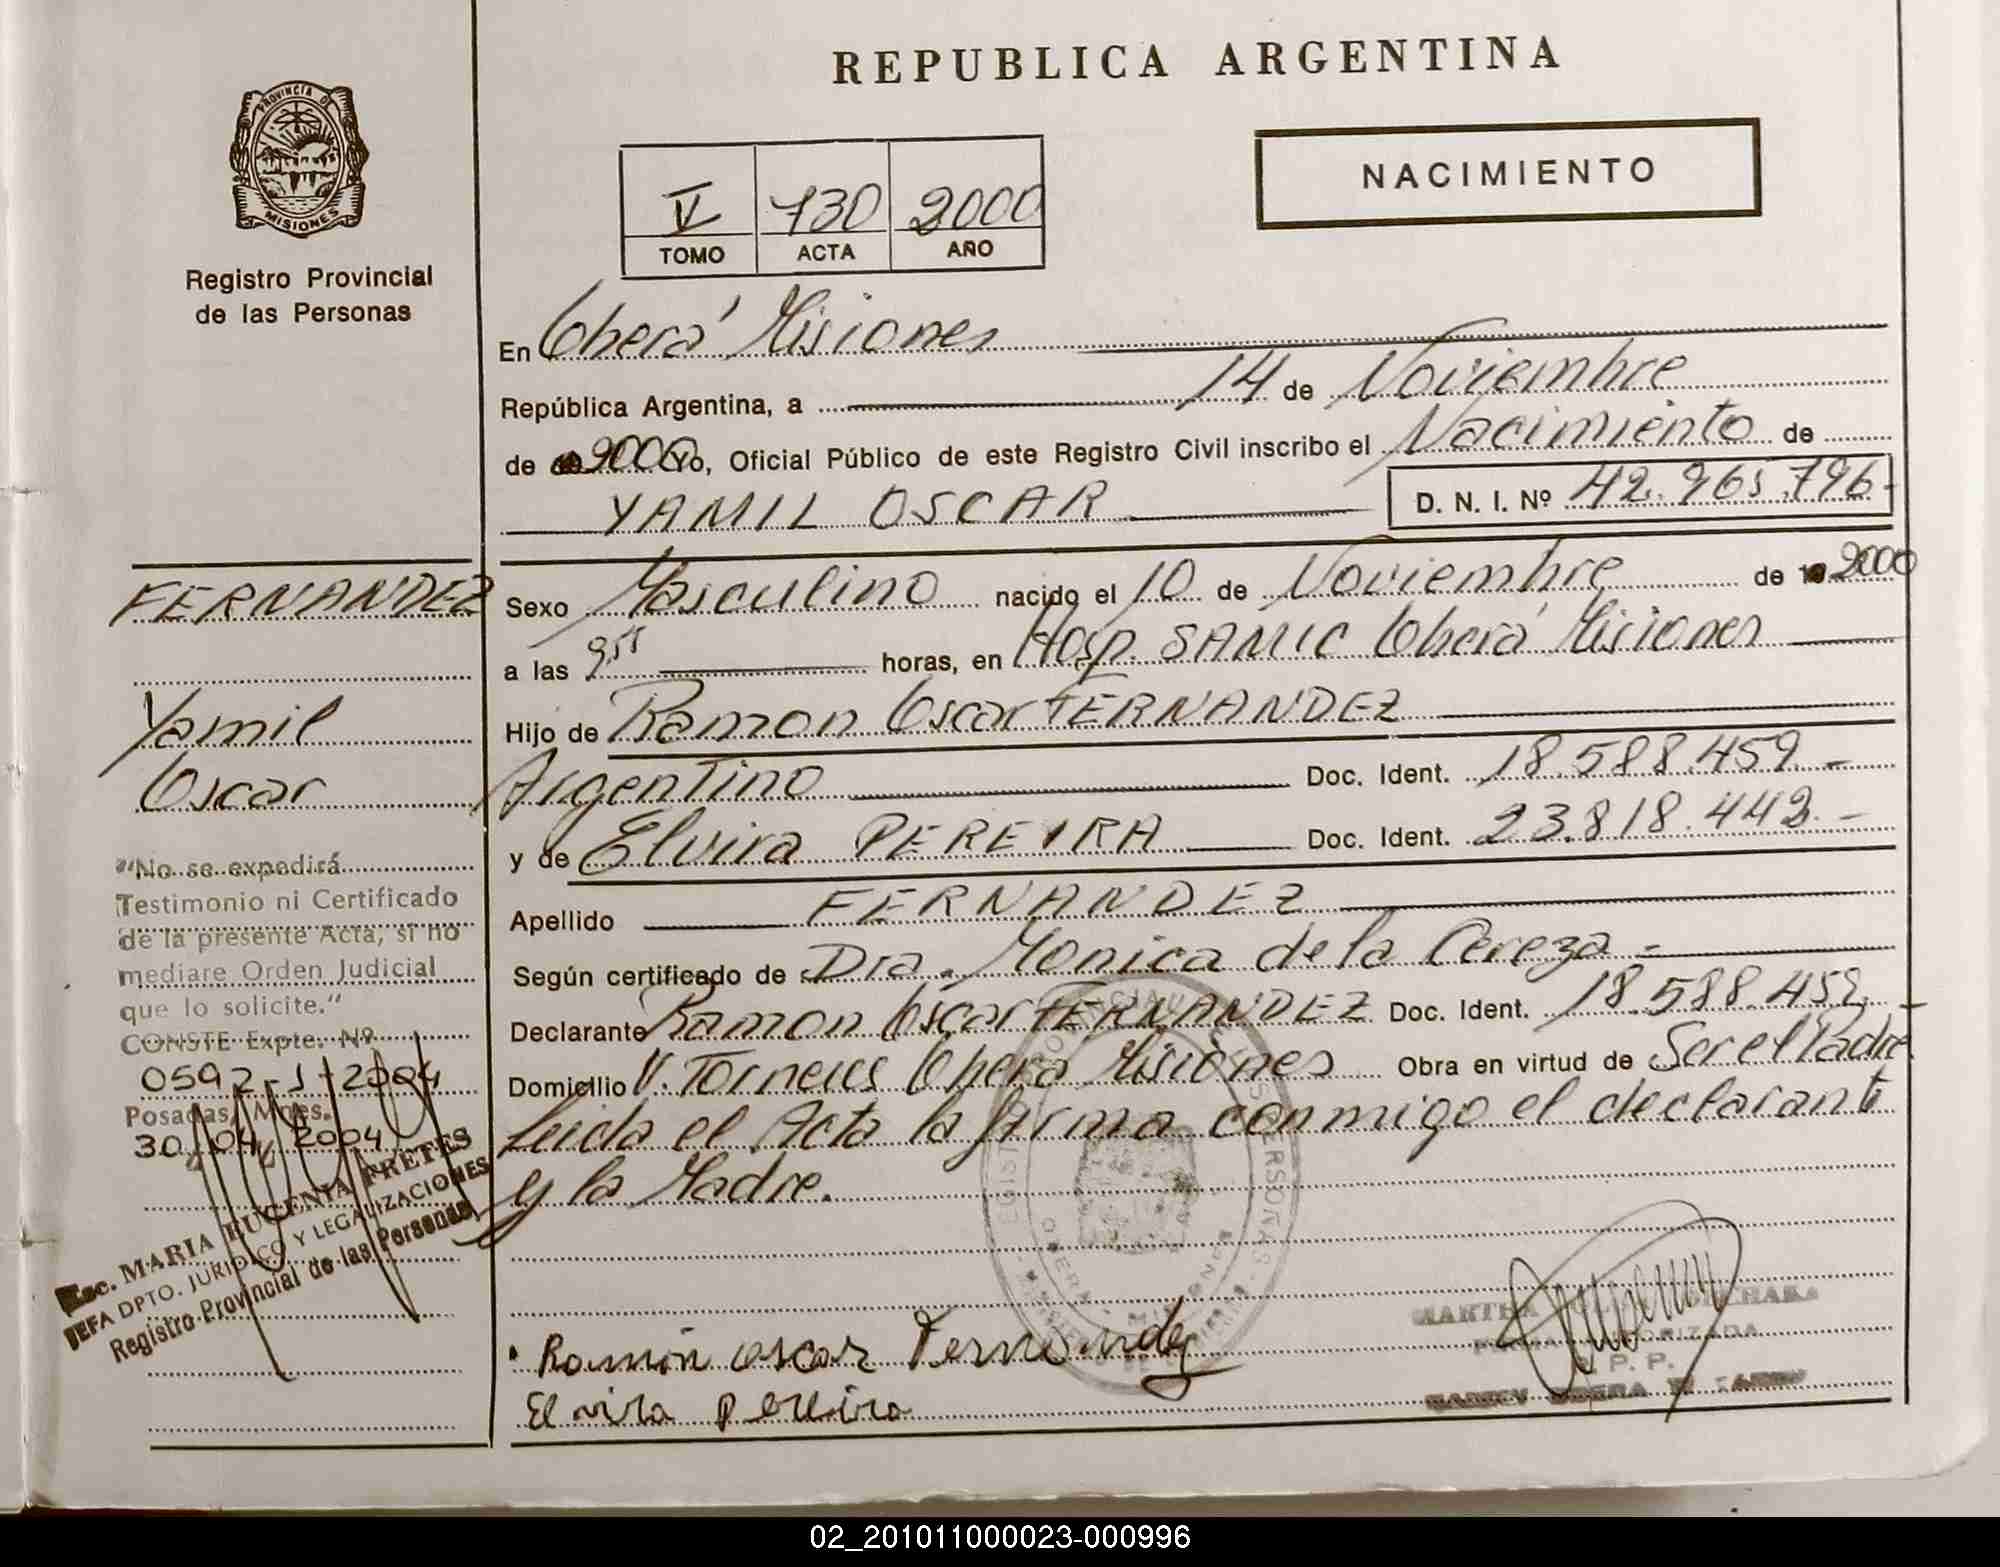 REPUBLICA ARGENTINA
PROVINCIA DE
MISIONES
Registro Provincial
de las Personas
NACIMIENTO
V 730 2000
TOMO ACTA AÑO
En Oberá Misiones
República Argentina, a 14 de Noviembre
de 2000 Yo, Oficial Público de este Registro Civil inscribo el Nacimiento de
YAMIL OSCAR D. N. I. Nº 42.965.796-
Sexo Masculino nacido el 10 de Noviembre de 2000
a las 9 55 horas, en Hosp. SAMIC Oberá Misiones
Hijo de Ramon Oscar FERNANDEZ
Argentino Doc. Ident. 18.588.459.-
y de Elvira PEREIRA Doc. Ident. 23.818.442.-
Apellido FERNANDEZ
Según certificado de Dra. Monica de la Cereza-
Declarante Ramon Oscar FERNANDEZ Doc. Ident. 18.588.459.-
Domicilio V. Torneus Oberá Misiones Obra en virtud de Ser el Padre.
Leida el Acta la firma conmigo el declarante
y la Madre.
Ramón oscar Fernandez
Elvira pereira
FERNANDEZ
Yamil
Oscar
"No se expedirá
Testimonio ni Certificado
de la presente Acta, si no
mediare Orden Judicial
que lo solicite."
CONSTE Expte. Nº
0592-1-2004
Posadas, Mnes.
30/04/2004
Esc. MARIA EUGENIA PRETES
JEFA DPTO. JURIDICO Y LEGALIZACIONES
Registro Provincial de las Personas
MARTHA
R. P. P.
02_201011000023-000996